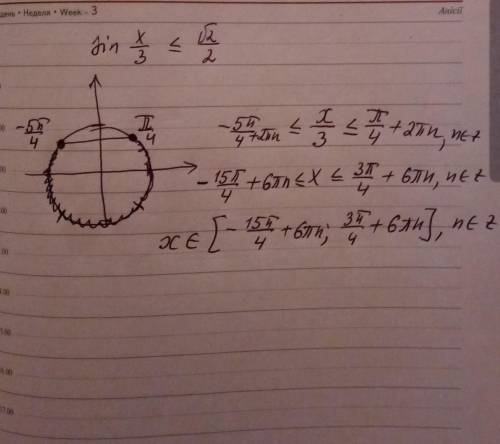 день • Неделя • Week - 3
Анісії
sin x/3 ≤ √2/2
-5π/4
π/4
-5π/4+2πn ≤ x/3 ≤ π/4 + 2πn, n∈z
-15π/4 + 6πn ≤ x ≤ 3π/4 + 6πn, n∈z
x ∈ [-15π/4 + 6πn; 3π/4 + 6πn], n∈z